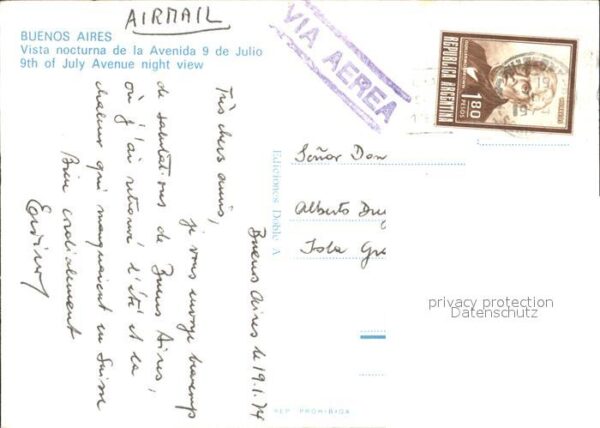 AIRMAIL
BUENOS AIRES
Vista nocturna de la Avenida 9 de Julio
9th of July Avenue night view
VIA AEREA
REPUBLICA ARGENTINA
1,80
PESOS
Buenos Aires le 19.1.74
Très chers amis,
je vous envoye beaucoup
de salutations de Buenos Aires,
où j'ai retrouvé l'été et la
chaleur qui manquaient en Suisse
Bien cordialement
Ediciones Doble A
Señor Don
Alberto
Isola
privacy protection
Datenschutz
REP. PROHIBIDA